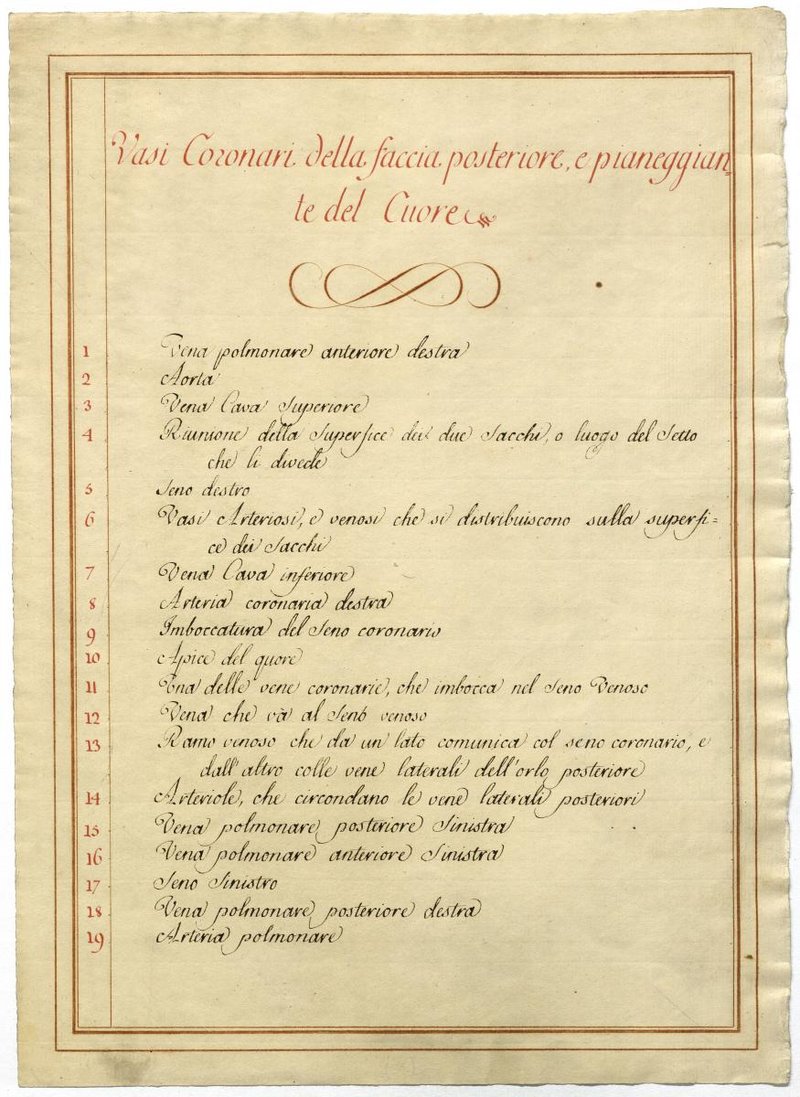 Vasi Coronari della faccia posteriore, e pianeggian=
te del Cuore
1 Vena polmonare anteriore destra
2 Aorta
3 Vena Cava Superiore
4 Riunione della Superfice dei due Sacchi, o luogo del Setto
che li divede
5 Seno destro
6 Vasi Arteriosi, e venosi che si distribuiscono sulla superfi=
ce dei Sacchi
7 Vena Cava inferiore
8 Arteria coronaria destra
9 Imboccatura del Seno coronario
10 Apice del quore
11 Una delle vene coronarie, che imbocca nel Seno Venoso
12 Vena che và al Seno venoso
13 Ramo venoso che da un lato comunica col seno coronario, e
dall'altro colle vene laterali dell'orlo posteriore
14 Arteriole, che circondano le vene laterali posteriori
15 Vena polmonare posteriore Sinistra
16 Vena polmonare anteriore Sinistra
17 Seno Sinistro
18 Vena polmonare posteriore destra
19 Arteria polmonare